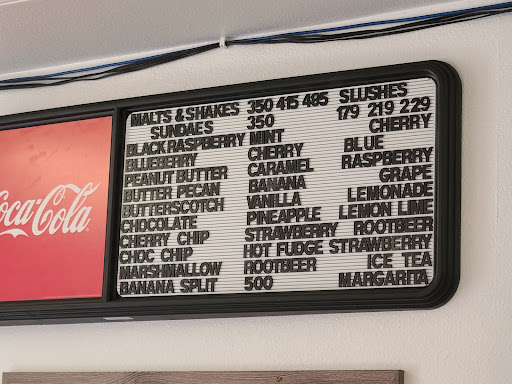 Coca-Cola
MALTS & SHAKES 350 415 485 SLUSHES
SUNDAES 350 179 219 229
BLACK RASPBERRY MINT CHERRY
BLUEBERRY CHERRY BLUE
PEANUT BUTTER CARAMEL RASPBERRY
BUTTER PECAN BANANA GRAPE
BUTTERSCOTCH VANILLA LEMONADE
CHOCOLATE PINEAPPLE LEMON LIME
CHERRY CHIP STRAWBERRY ROOTBEER
CHOC CHIP HOT FUDGE STRAWBERRY
MARSHMALLOW ROOTBEER ICE TEA
BANANA SPLIT 500 MARGARITA